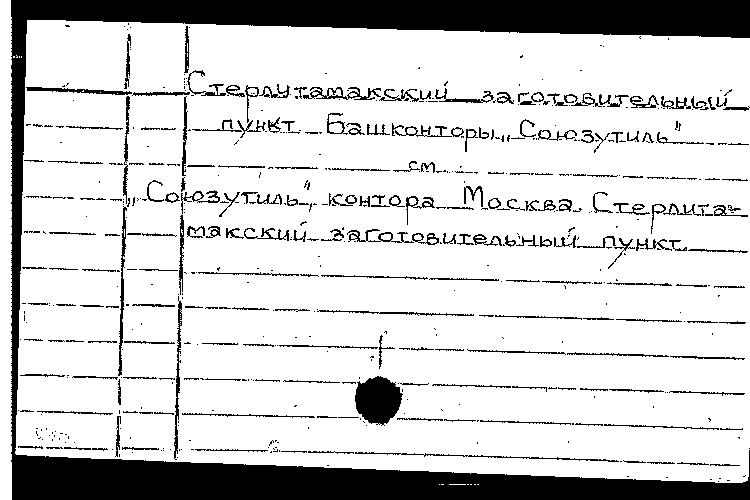 Стерлутамакский заготовительный
пункт Башконторы „Союзутиль"
см.
„Союзутиль", контора Москва. Стерлита-
макский заготовительный пункт.